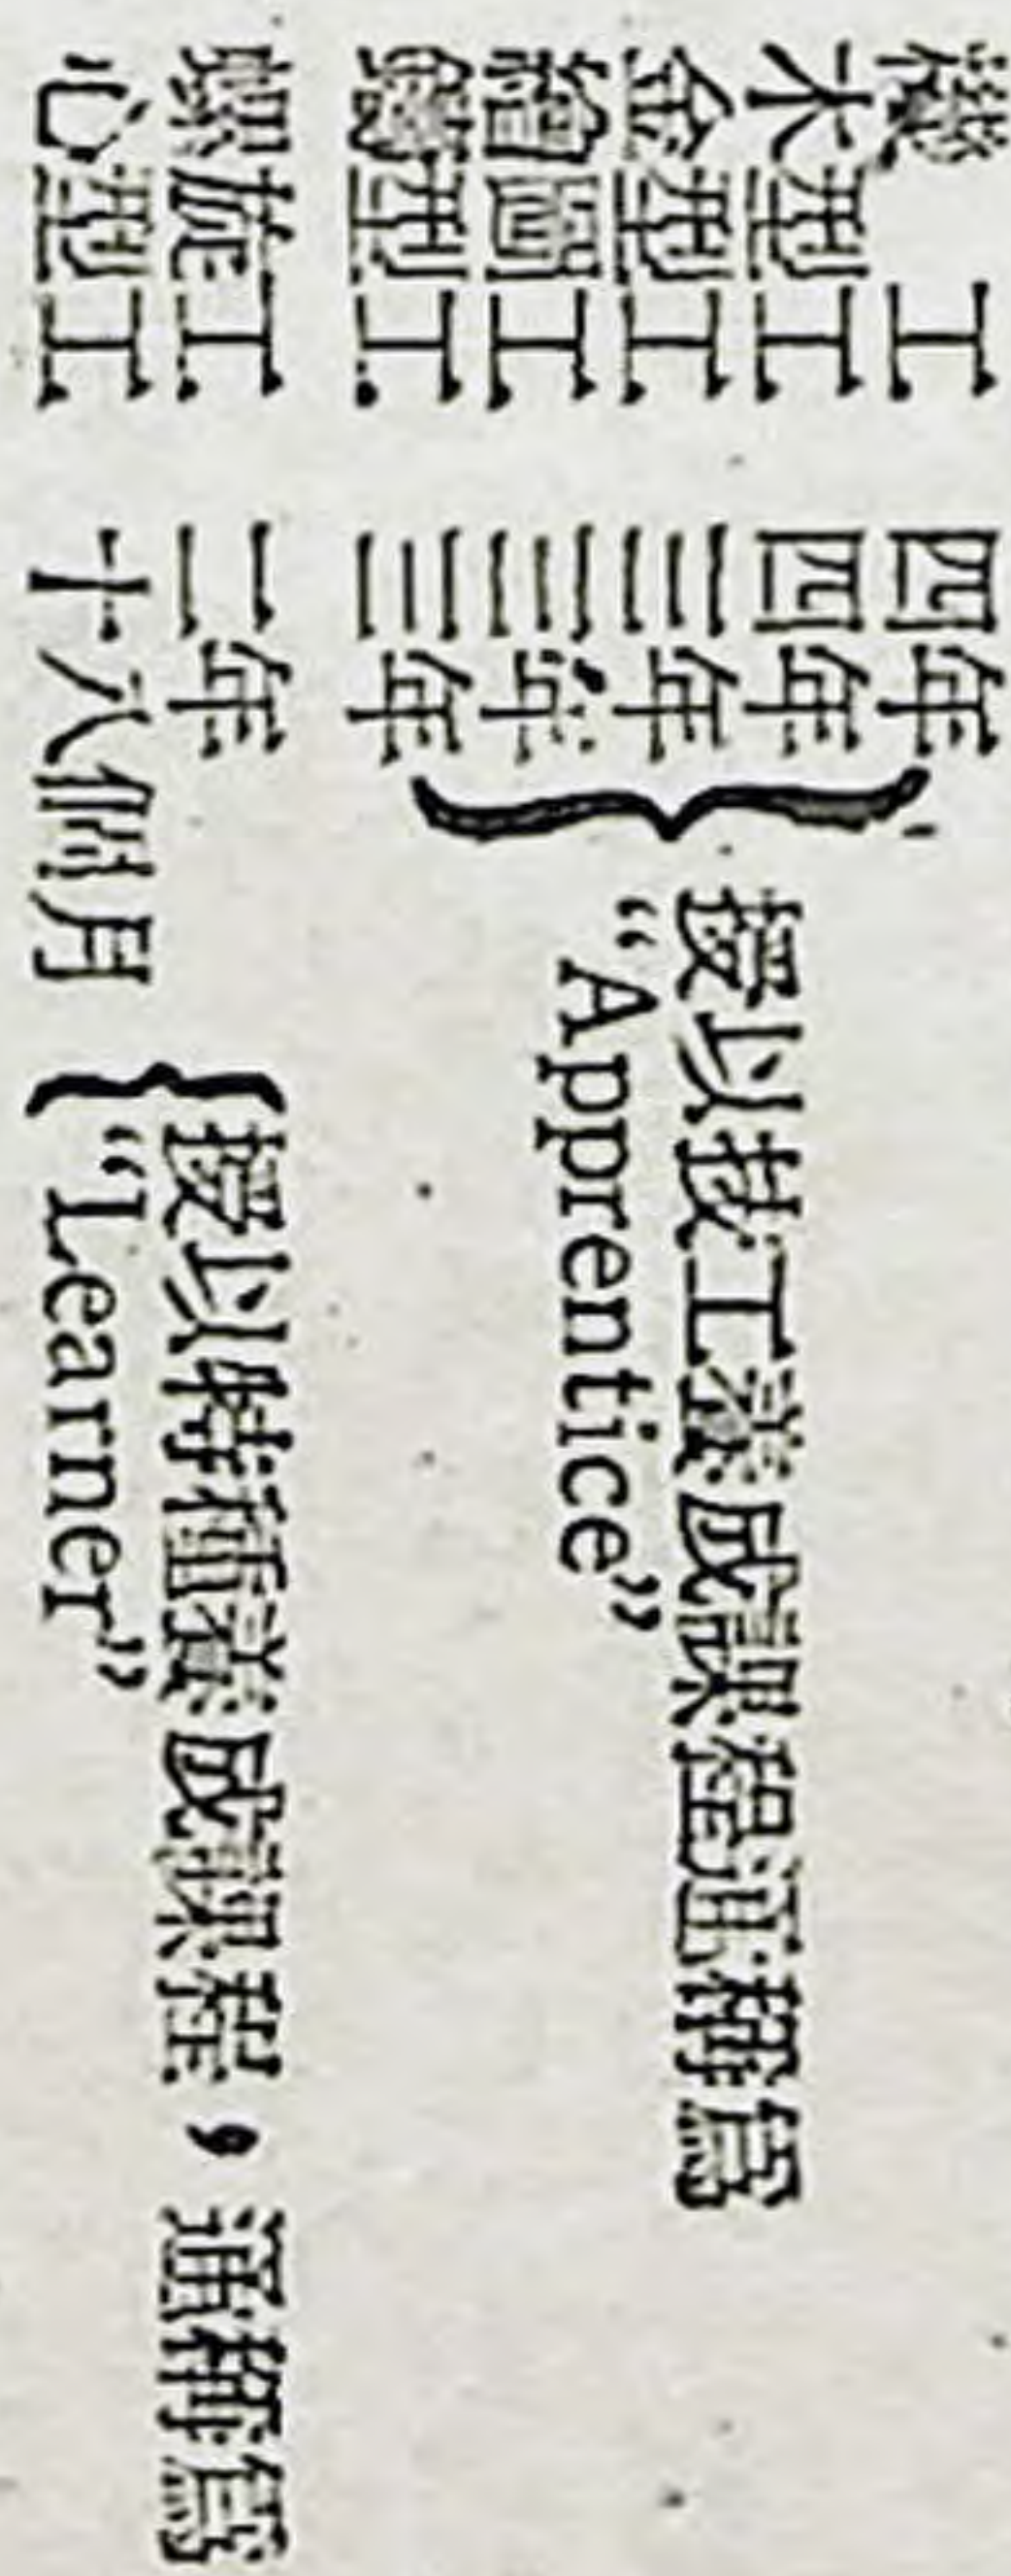 機　工　四年
木型工　四年
金型工　三年
繪圖工　三年
鑄型工　三年
授以技工養成課程通稱爲
“Apprentice”
螺旋工　二年
心型工　十八個月
授以特種養成課程，通稱爲
“Learner”